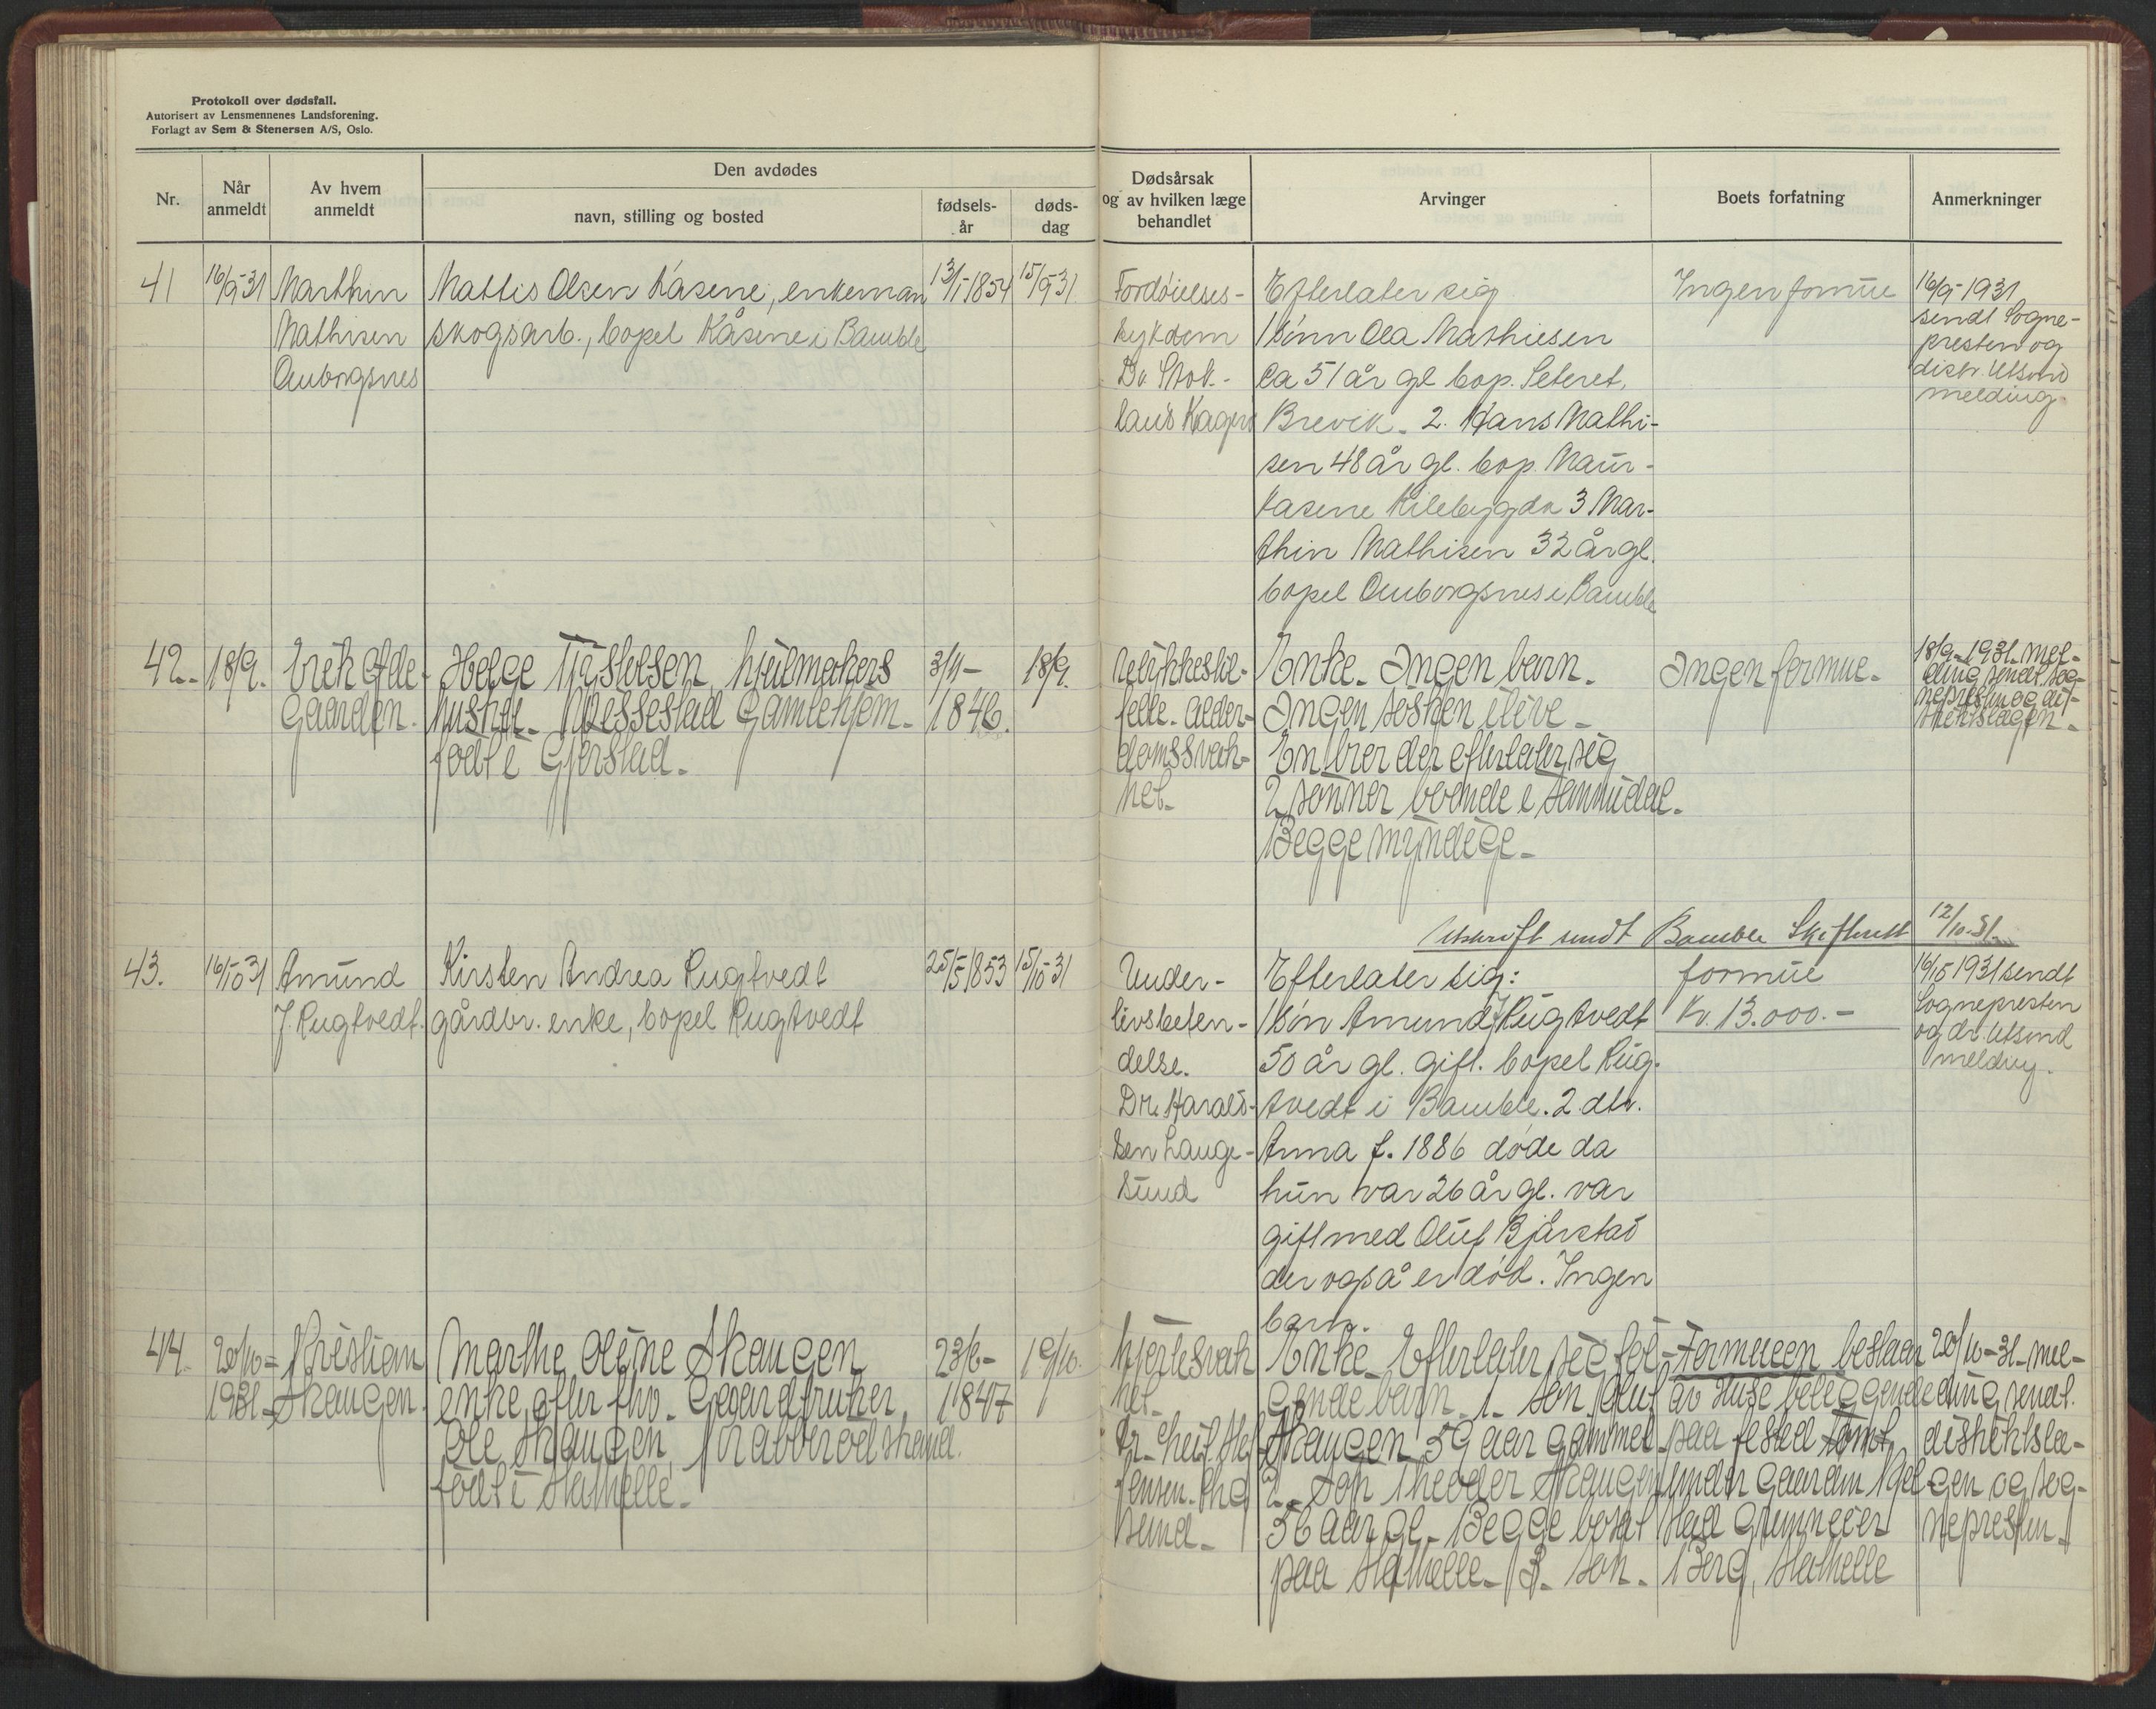 Protokoll over dødsfall.
Autorisert av Lensmennenes Landsforening.
Forlagt av Sem & Stenersen A/S, Oslo.
Nr.
Når
anmeldt
Av hvem
anmeldt
Den avdødes
navn, stilling og bosted
fødsels-
år
døds-
dag
Dødsårsak
og av hvilken læge
behandlet
Arvinger
Boets forfatning
Anmerkninger
41
16/9-31
Marthin
Mathisen
Omborgsnes
Mattis Olsen Kåsene, enkeman
skogsarb., bopel Kåsene i Bamble
13/1-1854
15/9-31
Fordøielses-
sykdom
Dr. Stok-
laus Kagerø
Efterlater sig
1 sønn Ola Mathiesen
ca 51 år gl bop. Seteret,
Brevik. 2. Hans Mathi-
sen 48 år gl. bop. Maur-
kasene Kilebygda 3 Mar-
thin Mathisen 32 år gl.
bopel Omborgsnes i Bamble
Ingen formue
16/9-1931
sendt Sogne-
presten og
distr. Utsend
melding.
42.
18/9.
Erik
Gaarden.
Helge Tjøstelsen, hjulmakers
hustru. Vessestad Gamlehjem.
født i Gjerstad.
3/11-
1846.
18/9.
Ulykkestil-
felle. Alder-
domssvak-
het.
Enke. Ingen barn.
Ingen søsken ilive.
En bror der efterlater sig
2 sønner boende i Sannidal.
Begge myndige.
Ingen formue.
18/9-1931. Mel-
ding sendt sog-
nepresten og dis-
triktslægen.
Utskrift sendt Bamble Skifterett 12/10.31.
43.
16/10 31
Amund
J. Rugtvedt.
Kirsten Andrea Rugtvedt
gårdbr. enke, bopel Rugtvedt
25/5 1853
15/10-31
Under-
livsbeten-
delse.
Dr. Harald-
sen Lange-
sund
Efterlater sig:
1 søn Amund J Rugtvedt
50 år gl. gift. bopel Rug-
tvedt i Bamble. 2 dtr.
Anna f. 1886 døde da
hun var 26 år gl. var
gift med Oluf Bjårstad
der også er død. Ingen
barn.
formue
Kr. 13.000.-
16/15 1931 sendt
Sognepresten
og dr. Utsend
melding.
44.
20/10-
1931.
Kristian
Skaugen.
Marthe Oline Skaugen
enke efter fhv. Gaardbruker
Ole Skaugen, Krabberødstrand.
født i Stathelle.
23/6-
1847
19/10.
Hjertesvak-
het.
Dr. Leif
Jensen.
sund.
Enke. Efterlater sig føl-
gende barn. 1. Søn Oluf
Skaugen 59 aar gammel
2. Søn Theodor Skaugen
56 aar gl. Begge bosat
paa Stathelle. 3. Søn.
Formueen bestaar
av Huse beliggende
paa fested tomt
under gaarden
stad Grunneier
Berg, Stathelle
20/10-31. Mel-
ding sendt.
distriktslæ-
gen og sog-
nepresten.